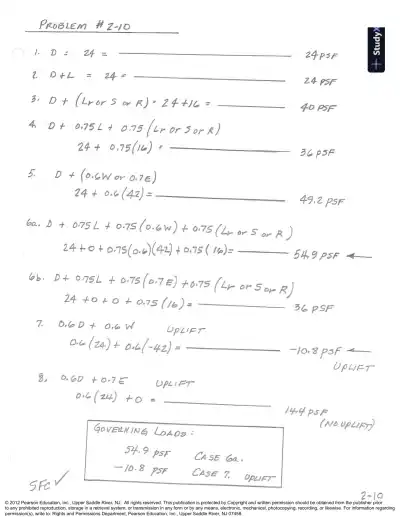 PROBLEM # 2-10
+ StudyX
1. D = 24 = 24 PSF
2. D+L = 24 = 24 PSF
3. D + (Lr or S or R) = 24+16 = 40 PSF
4. D + 0.75L + 0.75 (Lr or S or R)
24 + 0.75(16) = 36 PSF
5. D + (0.6W or 0.7E)
24 + 0.6(42) = 49.2 PSF
6a. D + 0.75L + 0.75(0.6W) + 0.75 (Lr or S or R)
24+0+0.75(0.6)(42)+0.75(16)= 54.9 PSF ←
6b. D+ 0.75L + 0.75(0.7E) +0.75 (Lr or S or R)
24 +0 +0 +0.75(16) = 36 PSF
7. 0.6D + 0.6W UPLIFT
0.6(24)+ 0.6(-42) = -10.8 PSF ←
UPLIFT
8. 0.6D +0.7E UPLIFT
0.6(24) +0 = 14.4 PSF
(NO UPLIFT)
GOVERNING LOADS:
54.9 PSF CASE 6a.
-10.8 PSF CASE 7. UPLIFT
SFC ✓
2-10
© 2012 Pearson Education, Inc., Upper Saddle River, NJ. All rights reserved. This publication is protected by Copyright and written permission should be obtained from the publisher prior
to any prohibited reproduction, storage in a retrieval system, or transmission in any form or by any means, electronic, mechanical, photocopying, recording, or likewise. For information regarding
permission(s), write to: Rights and Permissions Department, Pearson Education, Inc., Upper Saddle River, NJ 07458.